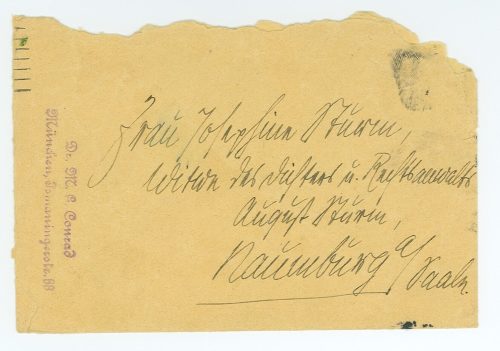 Frau Josephine Sturm,
Witwe des Dichters u. Rechtsanwalts
August Sturm,
Naumburg a/
Saale.
Dr. M. G. Conrad
München, Ismaningerstr. 68